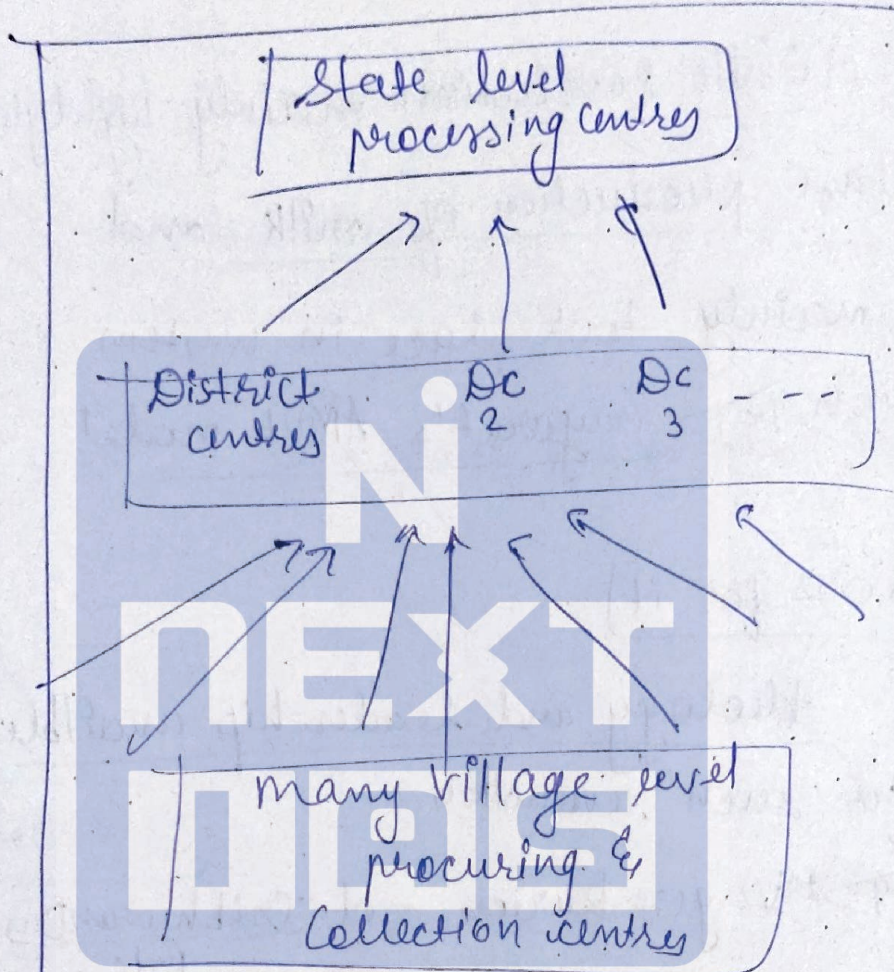 State level
processing centres
District Dc Dc - - -
centres 2 3
N
NEXT
IAS
many village level
procuring &
Collection centres